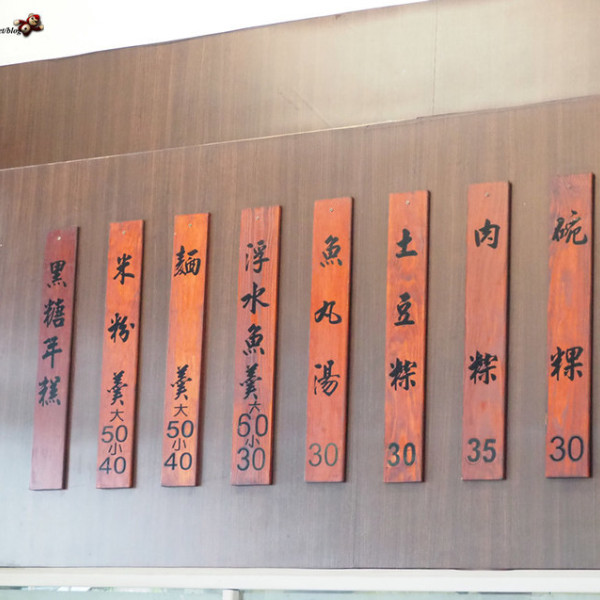 碗粿 30
肉粽 35
土豆粽 30
魚丸湯 30
浮水魚羹 大60 小30
麵羹 大50 小40
米粉羹 大50 小40
黑糖年糕